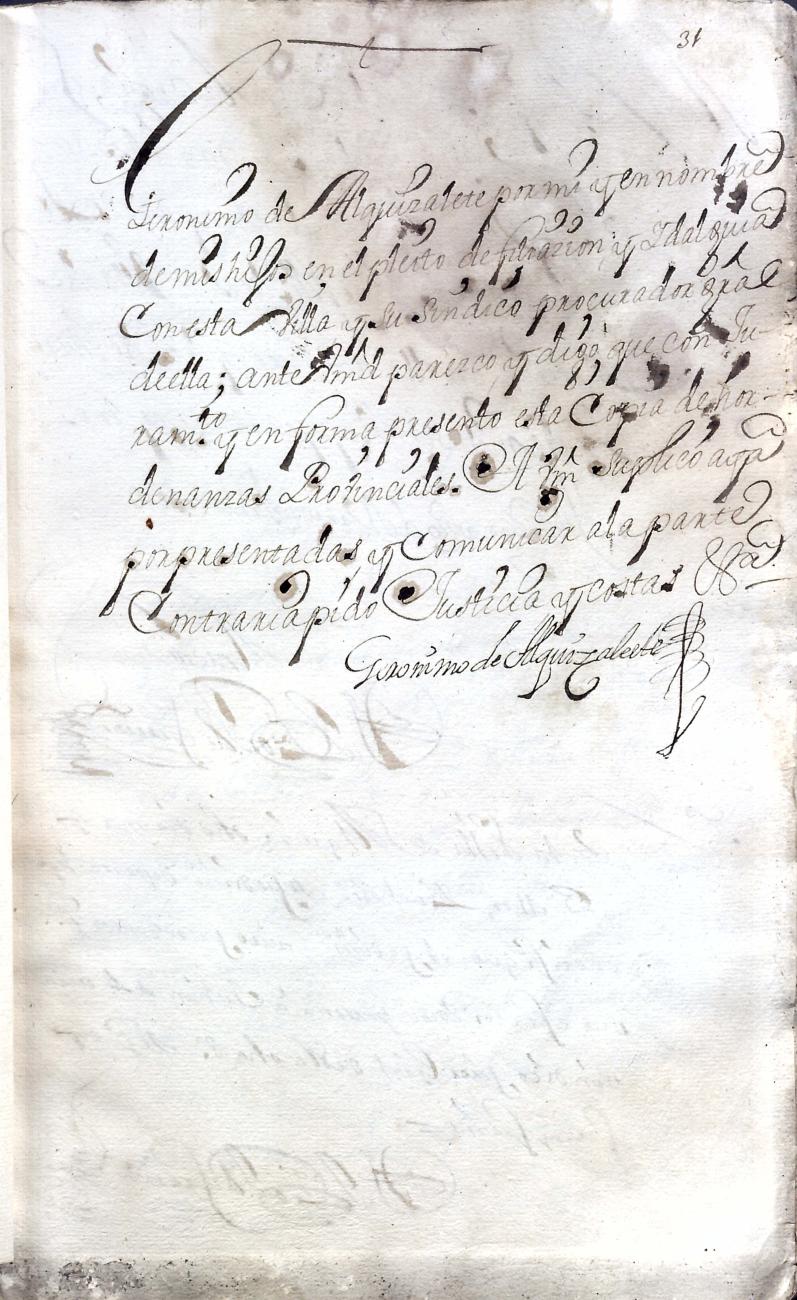 31
Geronimo de Alquizalete por mi y en nombre
de mis hijos en el pleito de filiazion y Idalguia
Con esta Villa y su sindico procurador gral
de ella; ante Vmd parezco y digo que con Ju-
ramto y en forma presento esta Copia de hor-
denanzas Provinciales. A Vm suplico aya
por presentadas y Comunicar a la parte
Contraria pido Justicia y costas &a
Geronimo de Alquizalete